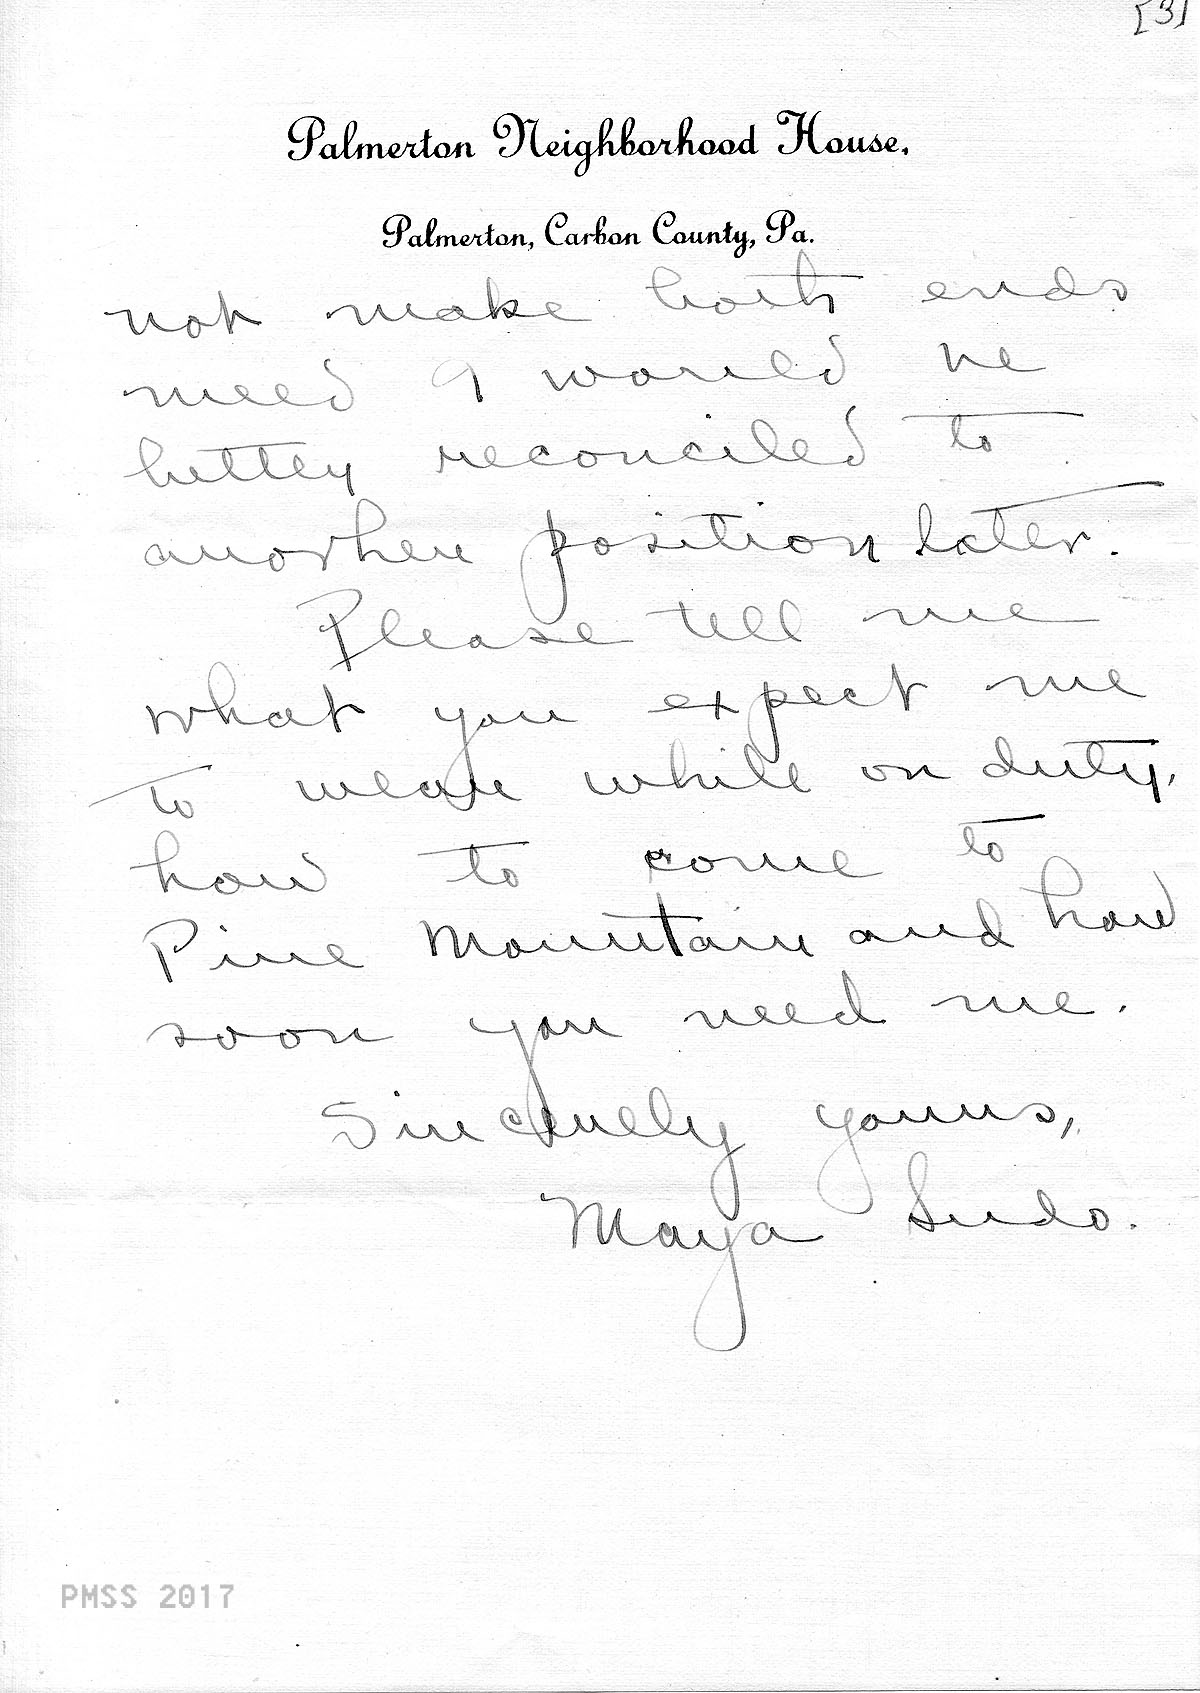 [3]
Palmerton Neighborhood House.
Palmerton, Carbon County, Pa.
not make both ends
meed I would be
better reconciled to
another position later.
Please tell me
what you expect me
to wear while on duty,
how to come to
Pine Mountain and how
soon you need me.
Sincerely yours,
Maya Sudo.
PMSS 2017